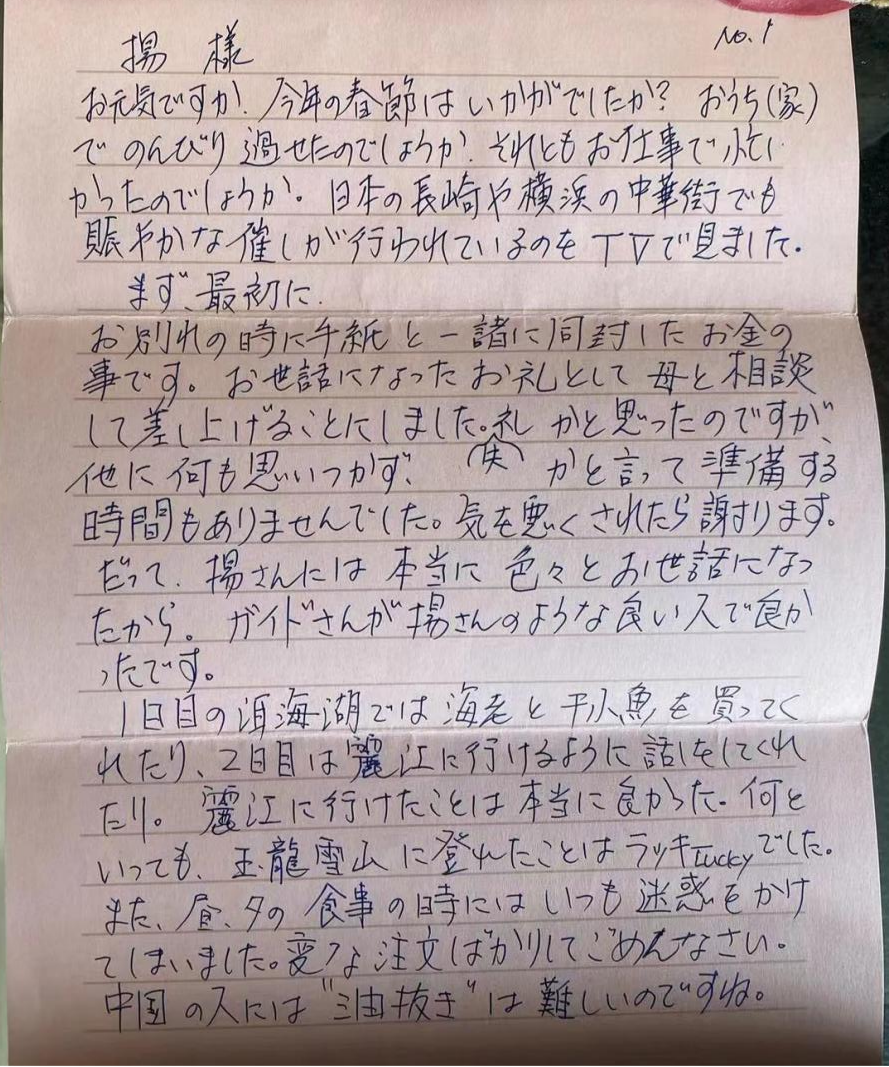 No.1
揚 様
お元気ですか. 今年の春節はいかがでしたか? おうち(家)
でのんびり過せたのでしょうか. それともお仕事で忙し
かったのでしょうか。日本の長崎や横浜の中華街でも
賑やかな催しが行われているのをTVで見ました.
まず、最初に.
お別れの時に手紙と一諸に同封したお金の
事です。お世話になったお礼として母と相談
して差し上げることにしました。失礼かと思ったのですが、
他に何も思いつかず、かと言って準備する
時間もありませんでした。気を悪くされたら謝ります。
だって、揚さんには本当に色々とお世話になっ
たから。ガイドさんが揚さんのような良い人で良か
ったです。
1日目の洱海湖では海老と干小魚を買ってく
れたり、2日目は麗江に行けるように話しをしてくれ
たり。麗江に行けたことは本当に良かった.何と
いっても、玉龍雪山に登れたことはラッキーLuckyでした。
また、昼、夕の食事の時にはいつも迷惑をかけ
てしまいました。変な注文ばかりしてごめんなさい。
中国の人には"油抜き"は難しいのですね。